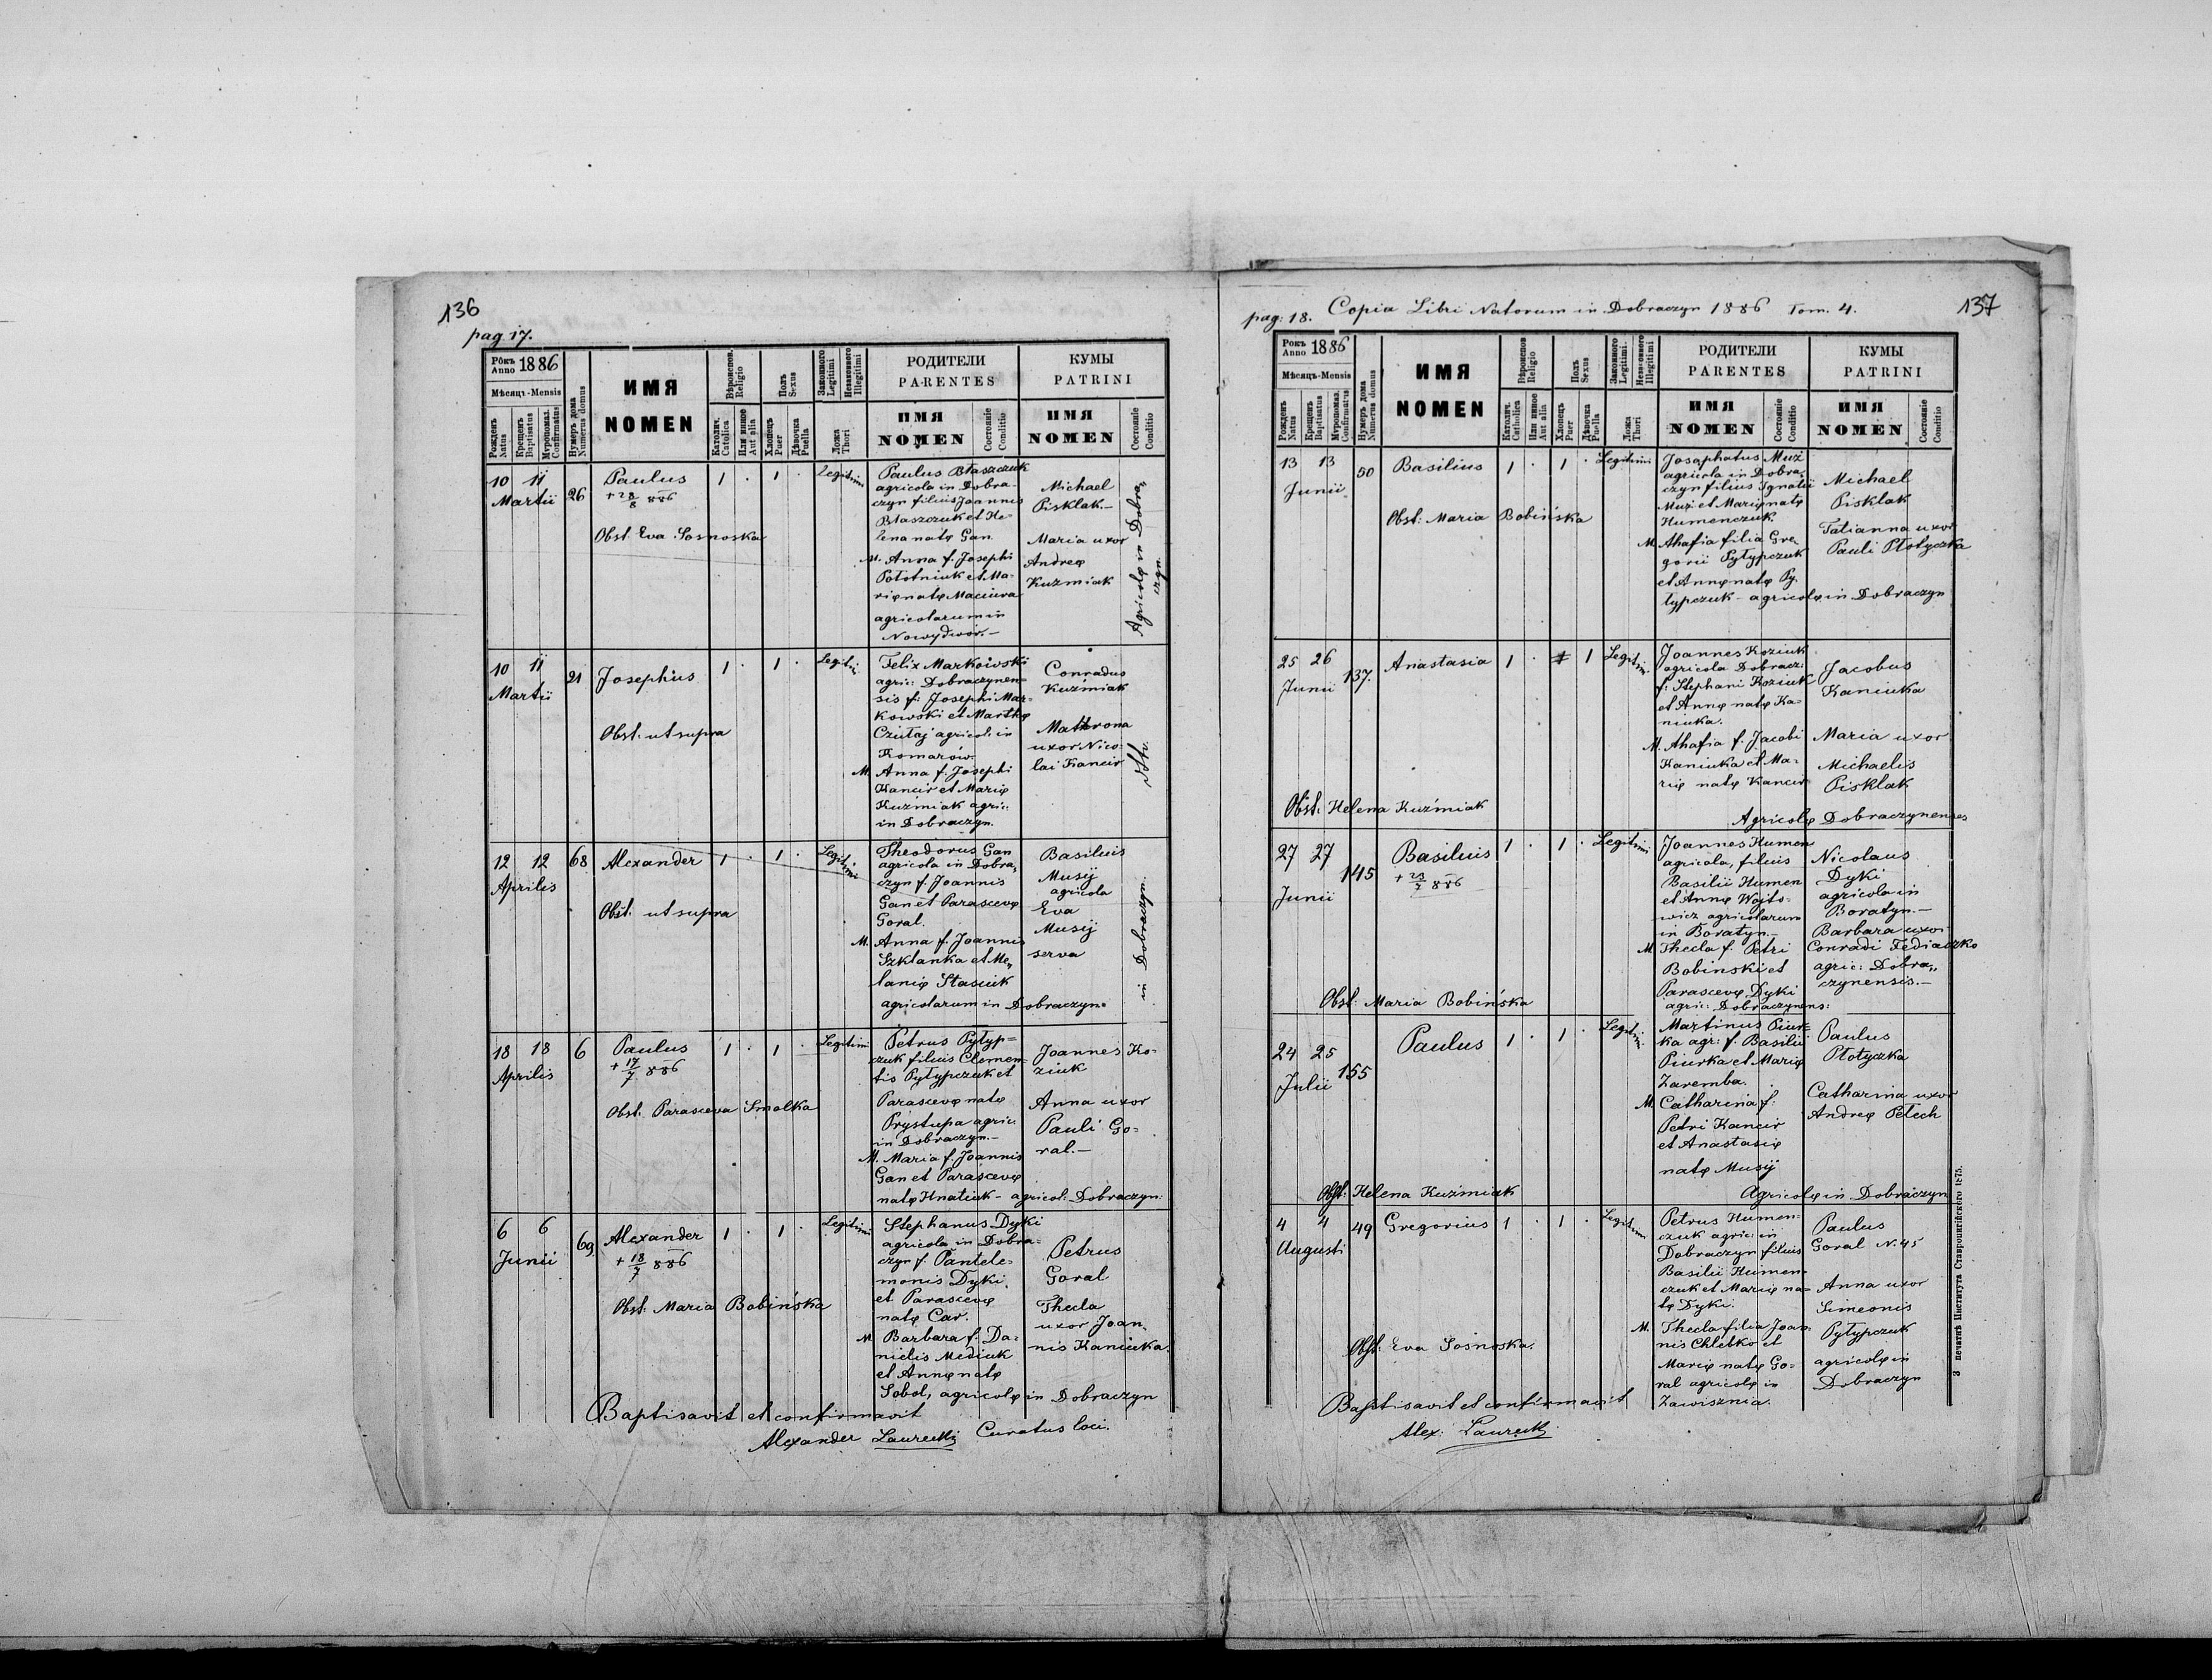 136
pag 17.
Рôкъ Anno 1886
Мѣсяць - Mensis
Рожденъ Natus
Крещенъ Baptisatus
Муропомаз. Confirmatus
Нумеръ дома Numerus domus
ИМЯ
NOMEN
Вѣроисповѣд. Religio
Католич. Catolica
Или иное Aut alia
Полъ Sexus
Хлопець Puer
Дѣвочка Puella
Законного Legitimi
Незаконного Illegitimi
Ложа Thori
РОДИТЕЛИ
PARENTES
ИМЯ
NOMEN
Состояніе Conditio
КУМЫ
PATRINI
ИМЯ
NOMEN
Состояніе Conditio
10 11
Martii
26
Paulus
+ 28/8 886
Obst. Eva Sosnoska
1 . 1 .
Legitimi
Paulus Błaszczuk
agricola in Dobra-
czyn filius Joannis
Błaszczuk et He-
lena natę Gan.
M. Anna f. Josephi
Połotniuk et Ma-
rię natę Maciura
agricolarum in
Nowydwór.-
Michael
Pisklak.-
Maria uxor
Andreę
Kuzmiak
Agricolę in Dobra„
czyn.
10 11
Martii
21
Josephus
Obst. ut supra
1 . 1 .
Legitimi
Felix Markowski
agric: Dobraczynen=
sis f: Josephi Mar-
kowski et Marthę
Czułaj agricol: in
Komarów
M. Anna f. Josephi
Kancir et Marię
Kuźmiak agric:
in Dobraczyn.
Conradus
Kuźmiak
Mathrona
uxor Nico-
lai Kancir
dtto.
12 12
Aprilis
68
Alexander
Obst. ut supra
1 . 1 .
Legitimi
Theodorus Gan
agricola in Dobra„
czyn f. Joannis
Gan et Parascevę
Goral.
M. Anna f. Joannis
Szklanka et Me„
lanię Stasiuk
agricolarum in Dobraczyn.
Basilius
Musij
agricola
Eva
Musij
serva
in Dobraczyn.
18 18
Aprilis
6
Paulus
+ 17/7 886
Obst. Parasceva Smolka
1 . 1 .
Legitimi
Petrus Pyłyp=
czuk filius Clemen=
tis Pyłypczuk et
Parascevę natę
Prystupa agric:
in Dobraczyn.-
M. Maria f. Joannis
Gan et Parascevę
natę Hnatiuk - agricol: Dobraczyn:
Joannes Ko-
ziuk
Anna uxor
Pauli Go-
ral.-
6 6
Junii
69
Alexander
+ 18/7 886
Obst: Maria Bobińska
1 . 1 .
Legitimi
Stephanus Dyki
agricola in Dobra=
czyn f. Pantele=
monis Dyki
et Parascevę
natę Car.
M Barbara f. Da-
nielis Mediuk
et Annę natę
Sobol, agricolę in Dobraczyn
Petrus
Goral
Thecla
uxor Joan„
nis Kaniuka.
Baptisavit et confirmavit
Alexander Laurecki Curatus loci.
pag: 18. Copia Libri Natorum in Dobraczyn 1886 Tom. 4.
137
Рокъ Anno 1886
Мѣсяць - Mensis
Рожденъ Natus
Крещенъ Baptisatus
Муропомаз. Confirmatus
Нумеръ дома Numerus domus
ИМЯ
NOMEN
Вѣроисповѣд Religio
Католич. Catholica
Или иное Aut alia
Полъ Sexus
Хлопець Puer
Дѣвочка Puella
Законного Legitimi.
Незаконного Illegitimi
Ложа Thori
РОДИТЕЛИ
PARENTES
ИМЯ
NOMEN
Состояніе Conditio
КУМЫ
PATRINI
ИМЯ
NOMEN
Состояніе Conditio
13 13
Junii
50
Basilius
Obst: Maria Bobińska
1 . 1 .
Legitimi
Josaphatus Muż
agricola in Dobra„
czyn filius Ignatii
Muż et Marię natę
Humenczuk.
M. Ahafia filia Gre„
gorii Pyłypczuk
et Annę natę Py.
łypczuk - agricolę in Dobraczyn
Michael
Pisklak
Tatianna uxor
Pauli Płotyczka
25 26
Junii
137.
Anastasia
1 . 1
Legitimi
Joannes Koziuk
agricola Dobracz:
f: Stephani Koziuk
et Annę natę Ka-
niuka.
M. Ahafia f. Jacobi
Kaniuka et Ma-
rię natę Kancir
Jacobus
Kaniuka
Maria uxor
Michaelis
Pisklak
Obst: Helena Kuźmiak
Agricolę Dobraczynenses
27 27
Junii
145
Basilius
+ 29/7 886
1 . 1 .
Legitimi
Joannes Humen
agricola, filius
Basilii Humen
et Annę Wojto-
wicz agricolarum
in Boratyn.-
M Thecla f. Petri
Bobinski et
Parascevę Dyki
agric: Dobraczynens:
Nicolaus
Dyki
agricola in
Boratyn.-
Barbara uxor
Conradi Fediaczko
agric: Dobra„
czynensis.-
Obst: Maria Bobińska
24 25
Julii
155
Paulus
1 . 1 .
Legitimi
Martinus Piur=
ka agr: f. Basilii
Piurka et Marię
Zaremba.
M. Catharina f:
Petri Kancir
et Anastasię
natę Musij
Paulus
Płotyczka
Catharina uxor
Andreę Pelech
Obst: Helena Kuźmiak
Agricolę in Dobraczyn
4 4
Augusti
49
Gregorius
1 . 1 .
Legitimi
Petrus Humen=
czuk agric: in
Dobraczyn filius
Basilii Humen-
czuk et Marię na=
tę Dyki.
M. Thecla filia Joan„
nis Chlebko et
Marię natę Go=
ral agricolę in
Zawisznia.
Paulus
Goral N. 45
Anna uxor
Simeonis
Pyłypczuk
agricolę in
Dobraczyn
Obst: Eva Sosnoska.
Baptisavit et confirmavit
Alex: Laurecki
З печатнѣ Института Ставропигійского 1875.